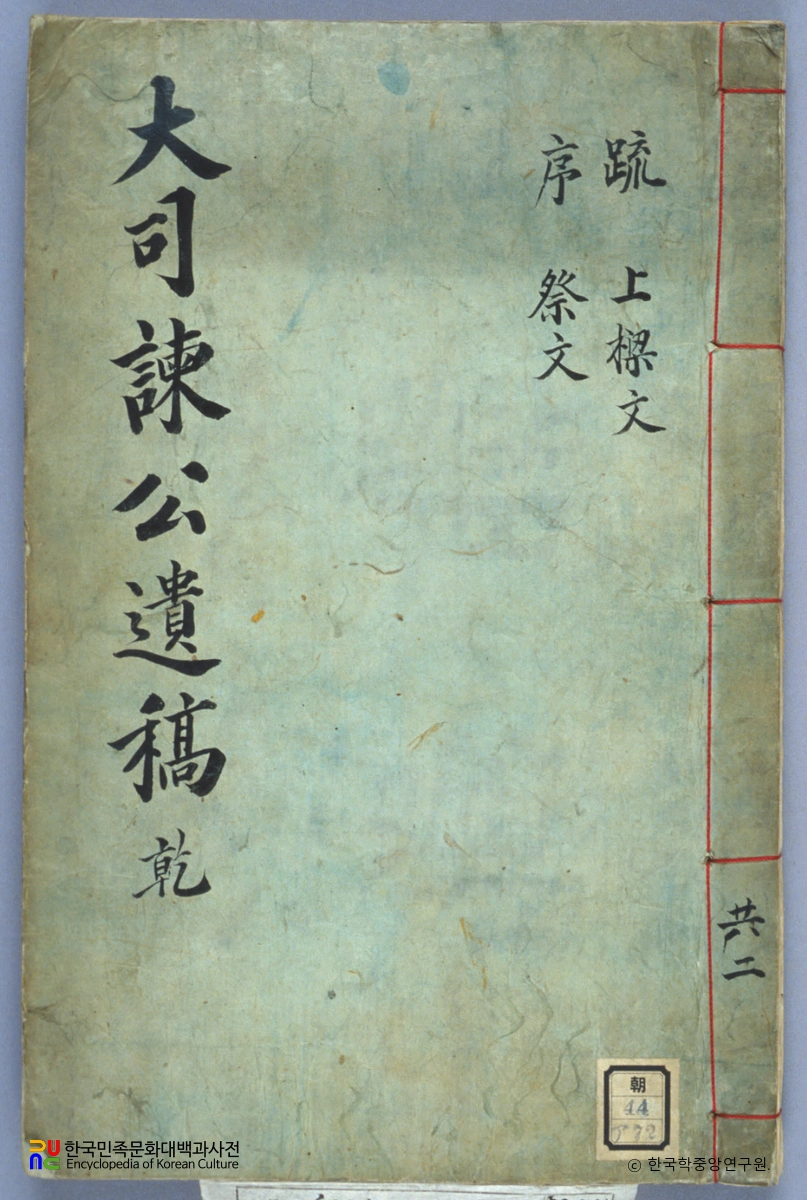 疏 上樑文
序 祭文
大司諫公遺稿 乾
共二
朝
44
한국민족문화대백과사전
Encyclopedia of Korean Culture
© 한국학중앙연구원